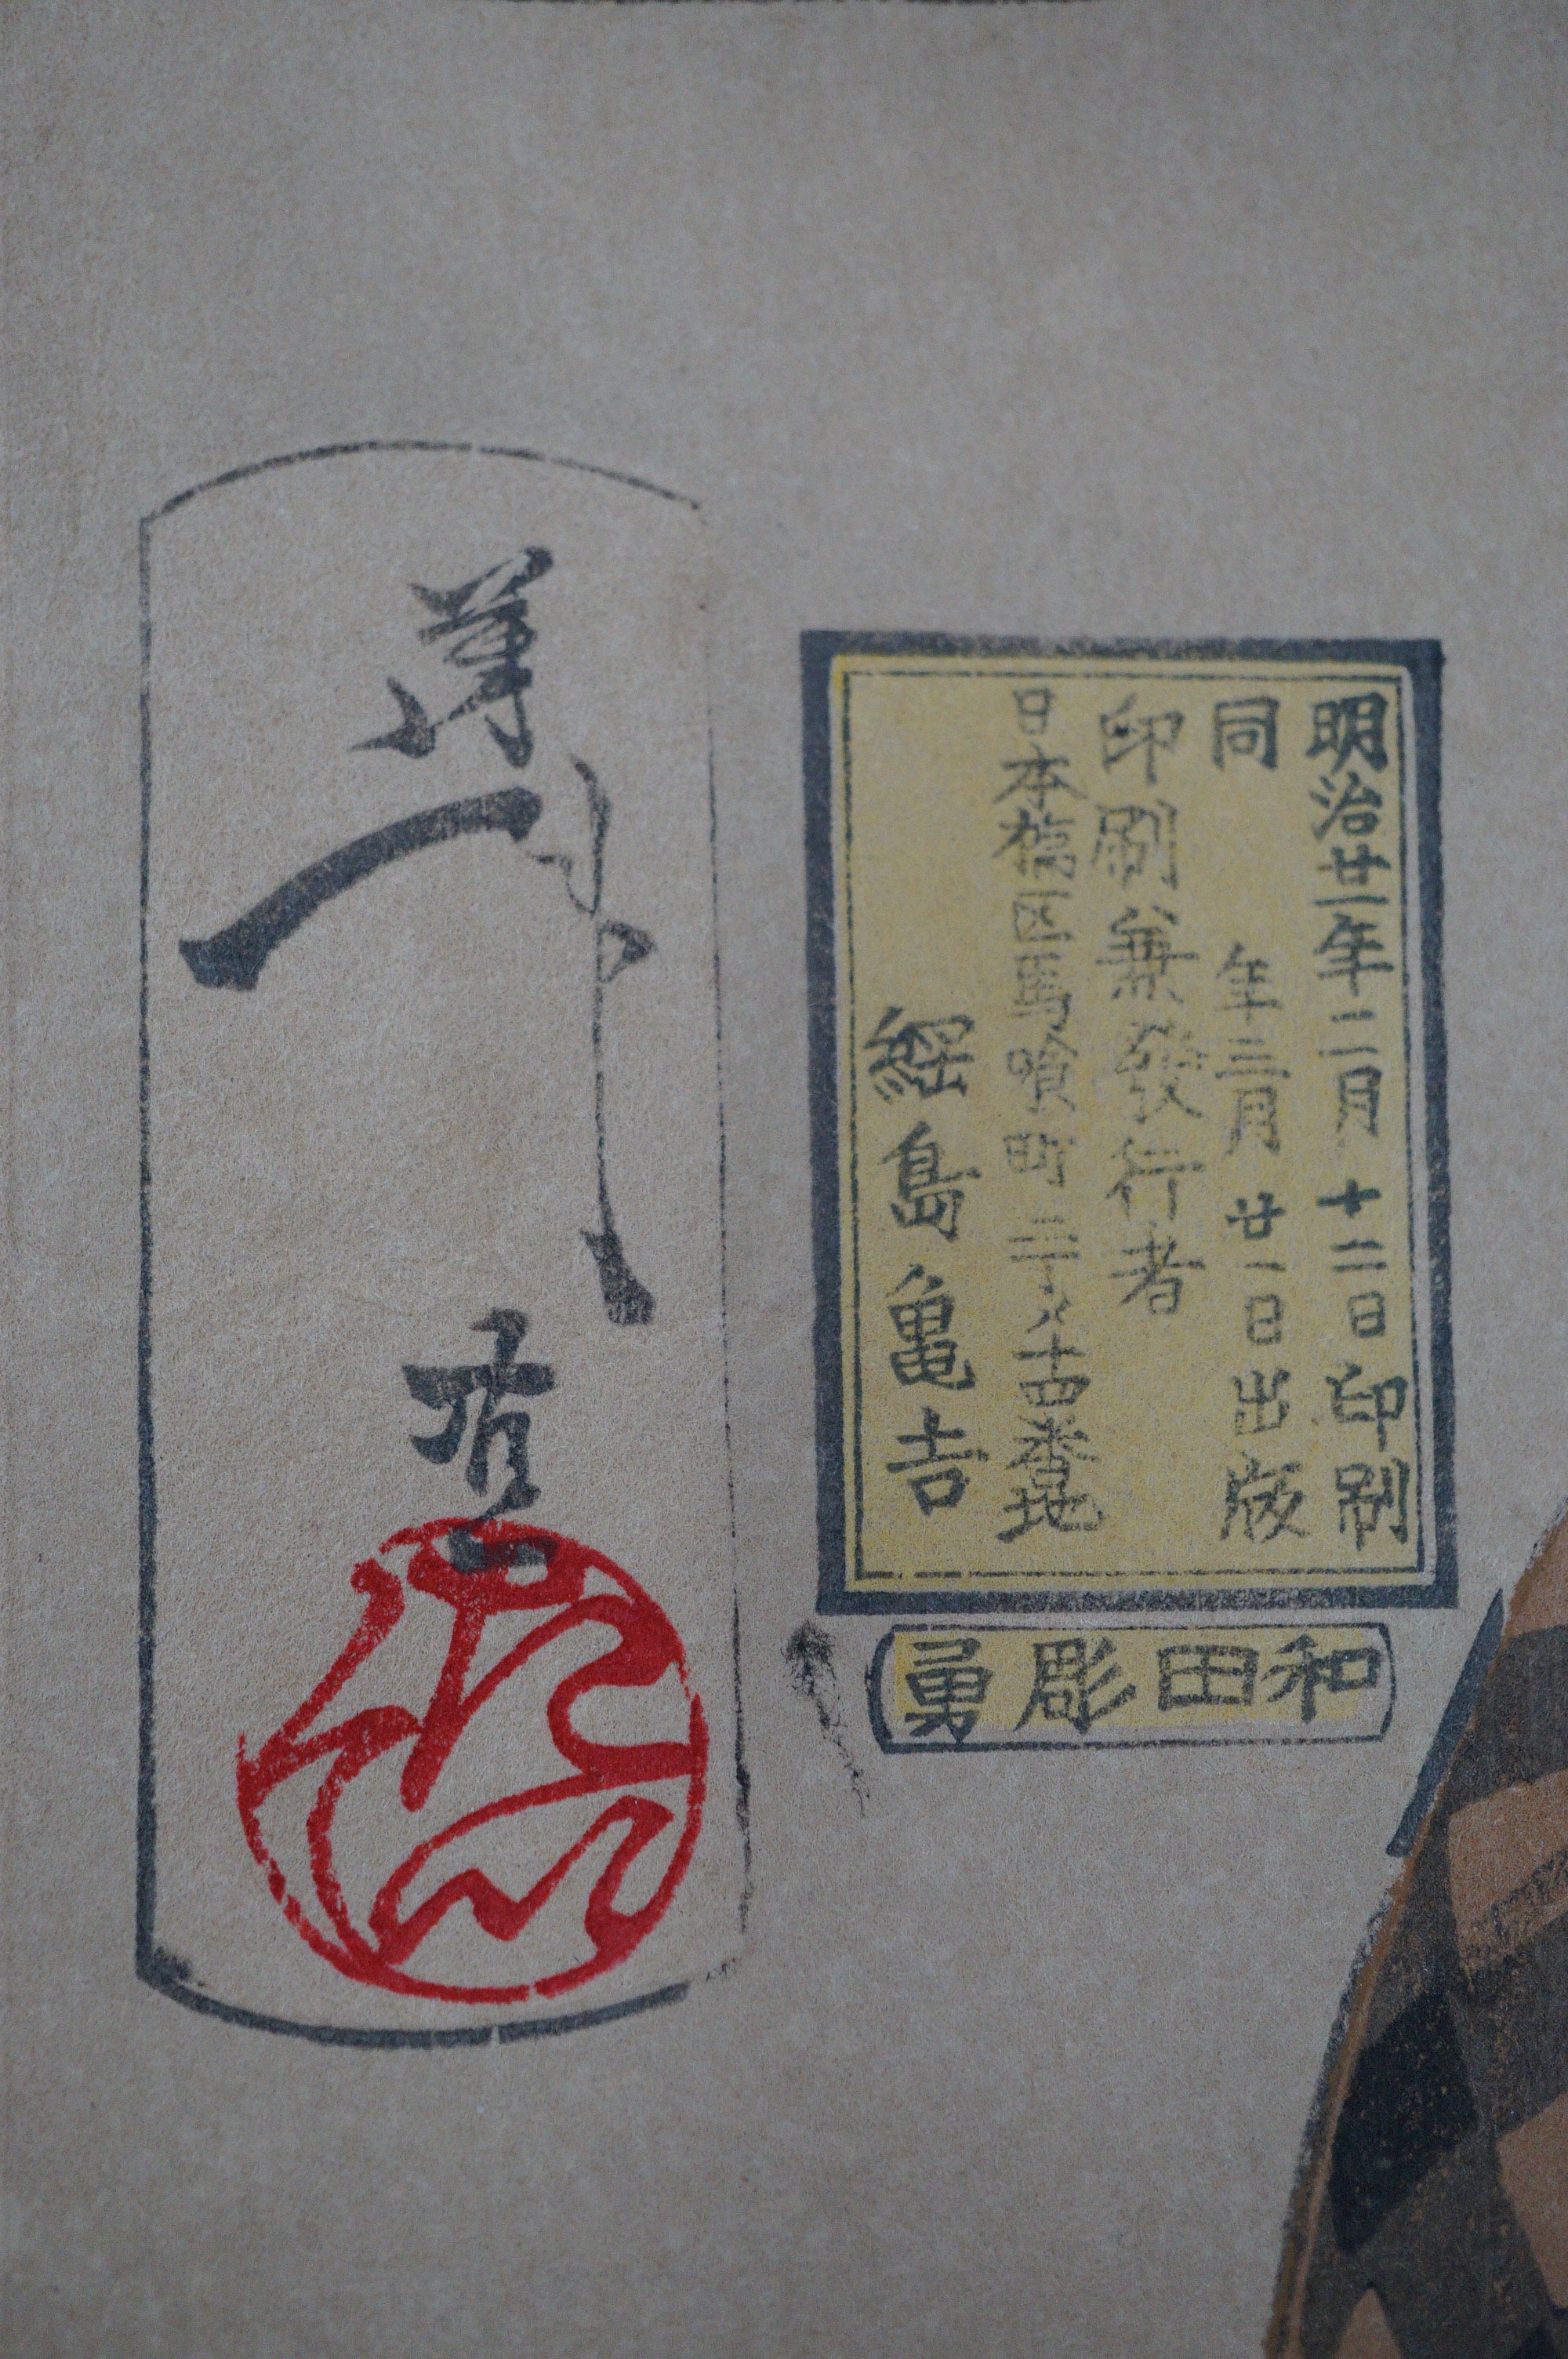 明治廿一年二月十二日印刷
同年三月廿一日出版
印刷兼發行者
日本橋区馬喰町二丁メ十四番地
綱島亀吉
和田彫勇